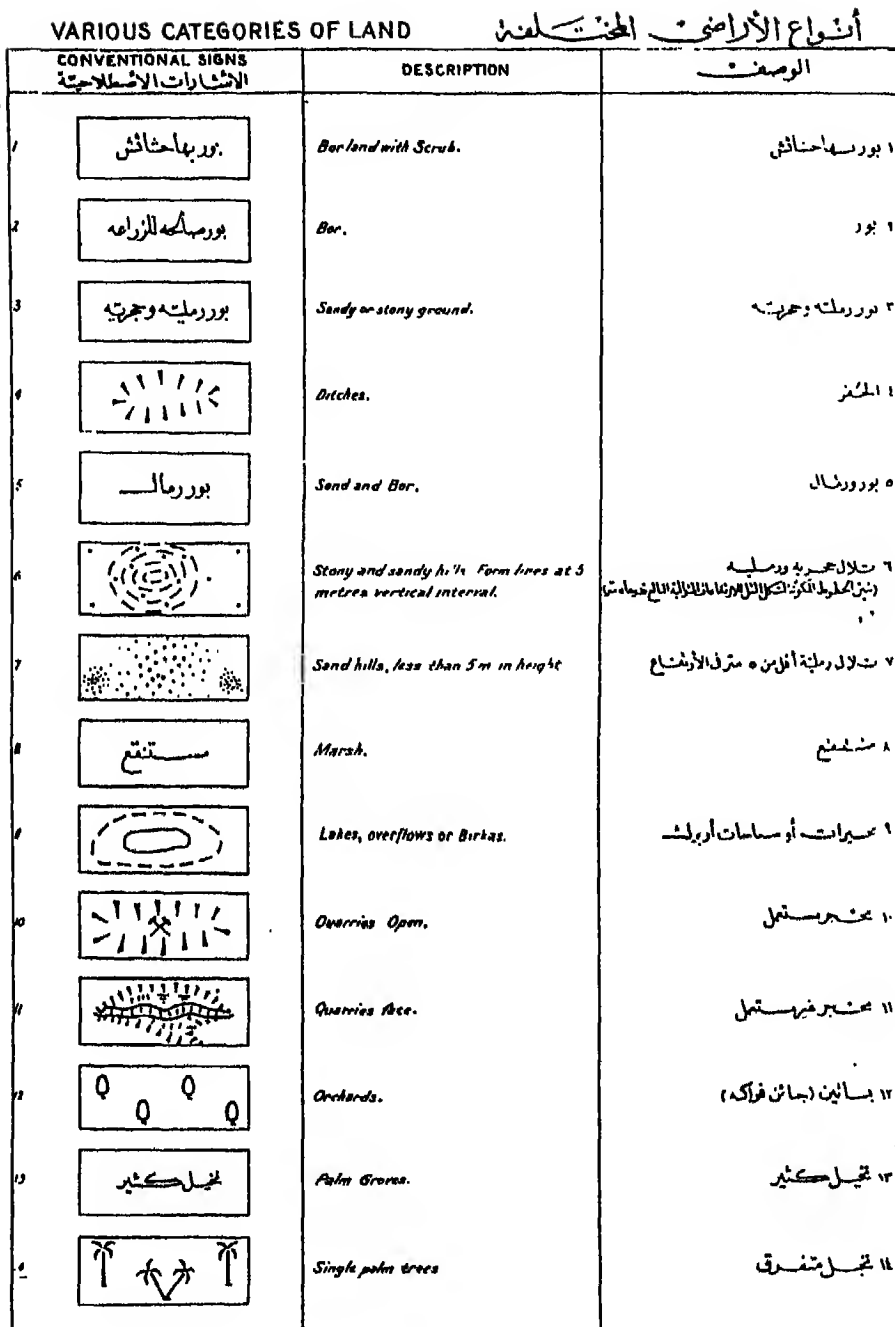 VARIOUS CATEGORIES OF LAND أنواع الأراضى المختلفة
CONVENTIONAL SIGNS
الاشارات الاصطلاحية
DESCRIPTION
الوصف
1 بور بها حشائش Bor land with Scrub. ١ بور بها حشائش
2 بور صالحه للزراعه Bor. ٢ بور
3 بور رمليه وحجريه Sandy or stony ground. ٣ بور رمليه وحجريه
4 Ditches. ٤ الحفر
5 بور رمال Sand and Bor. ٥ بور ورمال
6 Stony and sandy hills Form lines at 5
metres vertical interval.
٦ تلال حجريه ورمليه
7 Sand hills, less than 5m in height ٧ تلال رملية أقل من ٥ متر فى الأرتفاع
8 مستنقع Marsh. ٨ مستنقع
9 Lakes, overflows or Birkas. ٩ بحيرات أو سياحات أو برك
10 Quarries Open. ١٠ محجر مستعمل
11 Quarries face. ١١ محجر غير مستعمل
12 Orchards. ١٢ بساتين (جنائن فواكه)
13 نخيل كثير Palm Groves. ١٣ نخيل كثير
Single palm trees ١٤ نخل متفرق